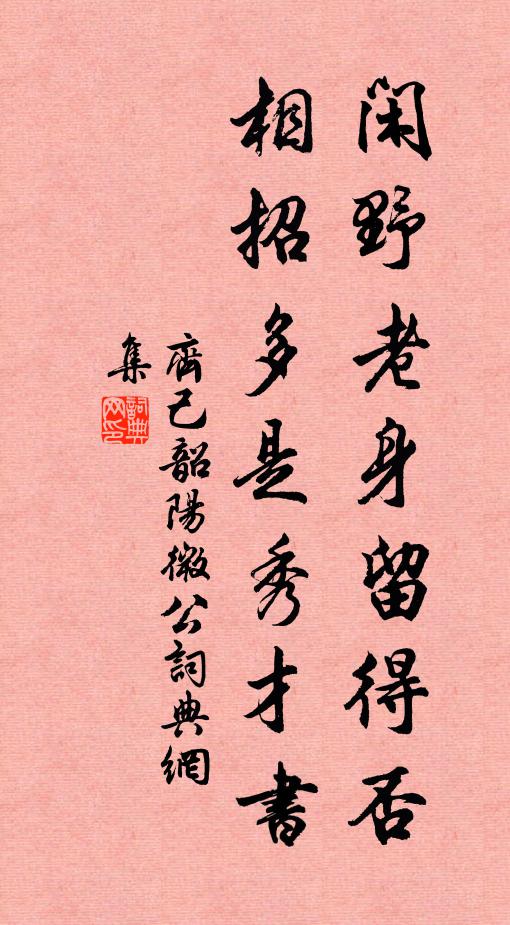 閑野老身留得否
相招多是秀才書
齊己韶陽微公詞典網
集
詞典
网印